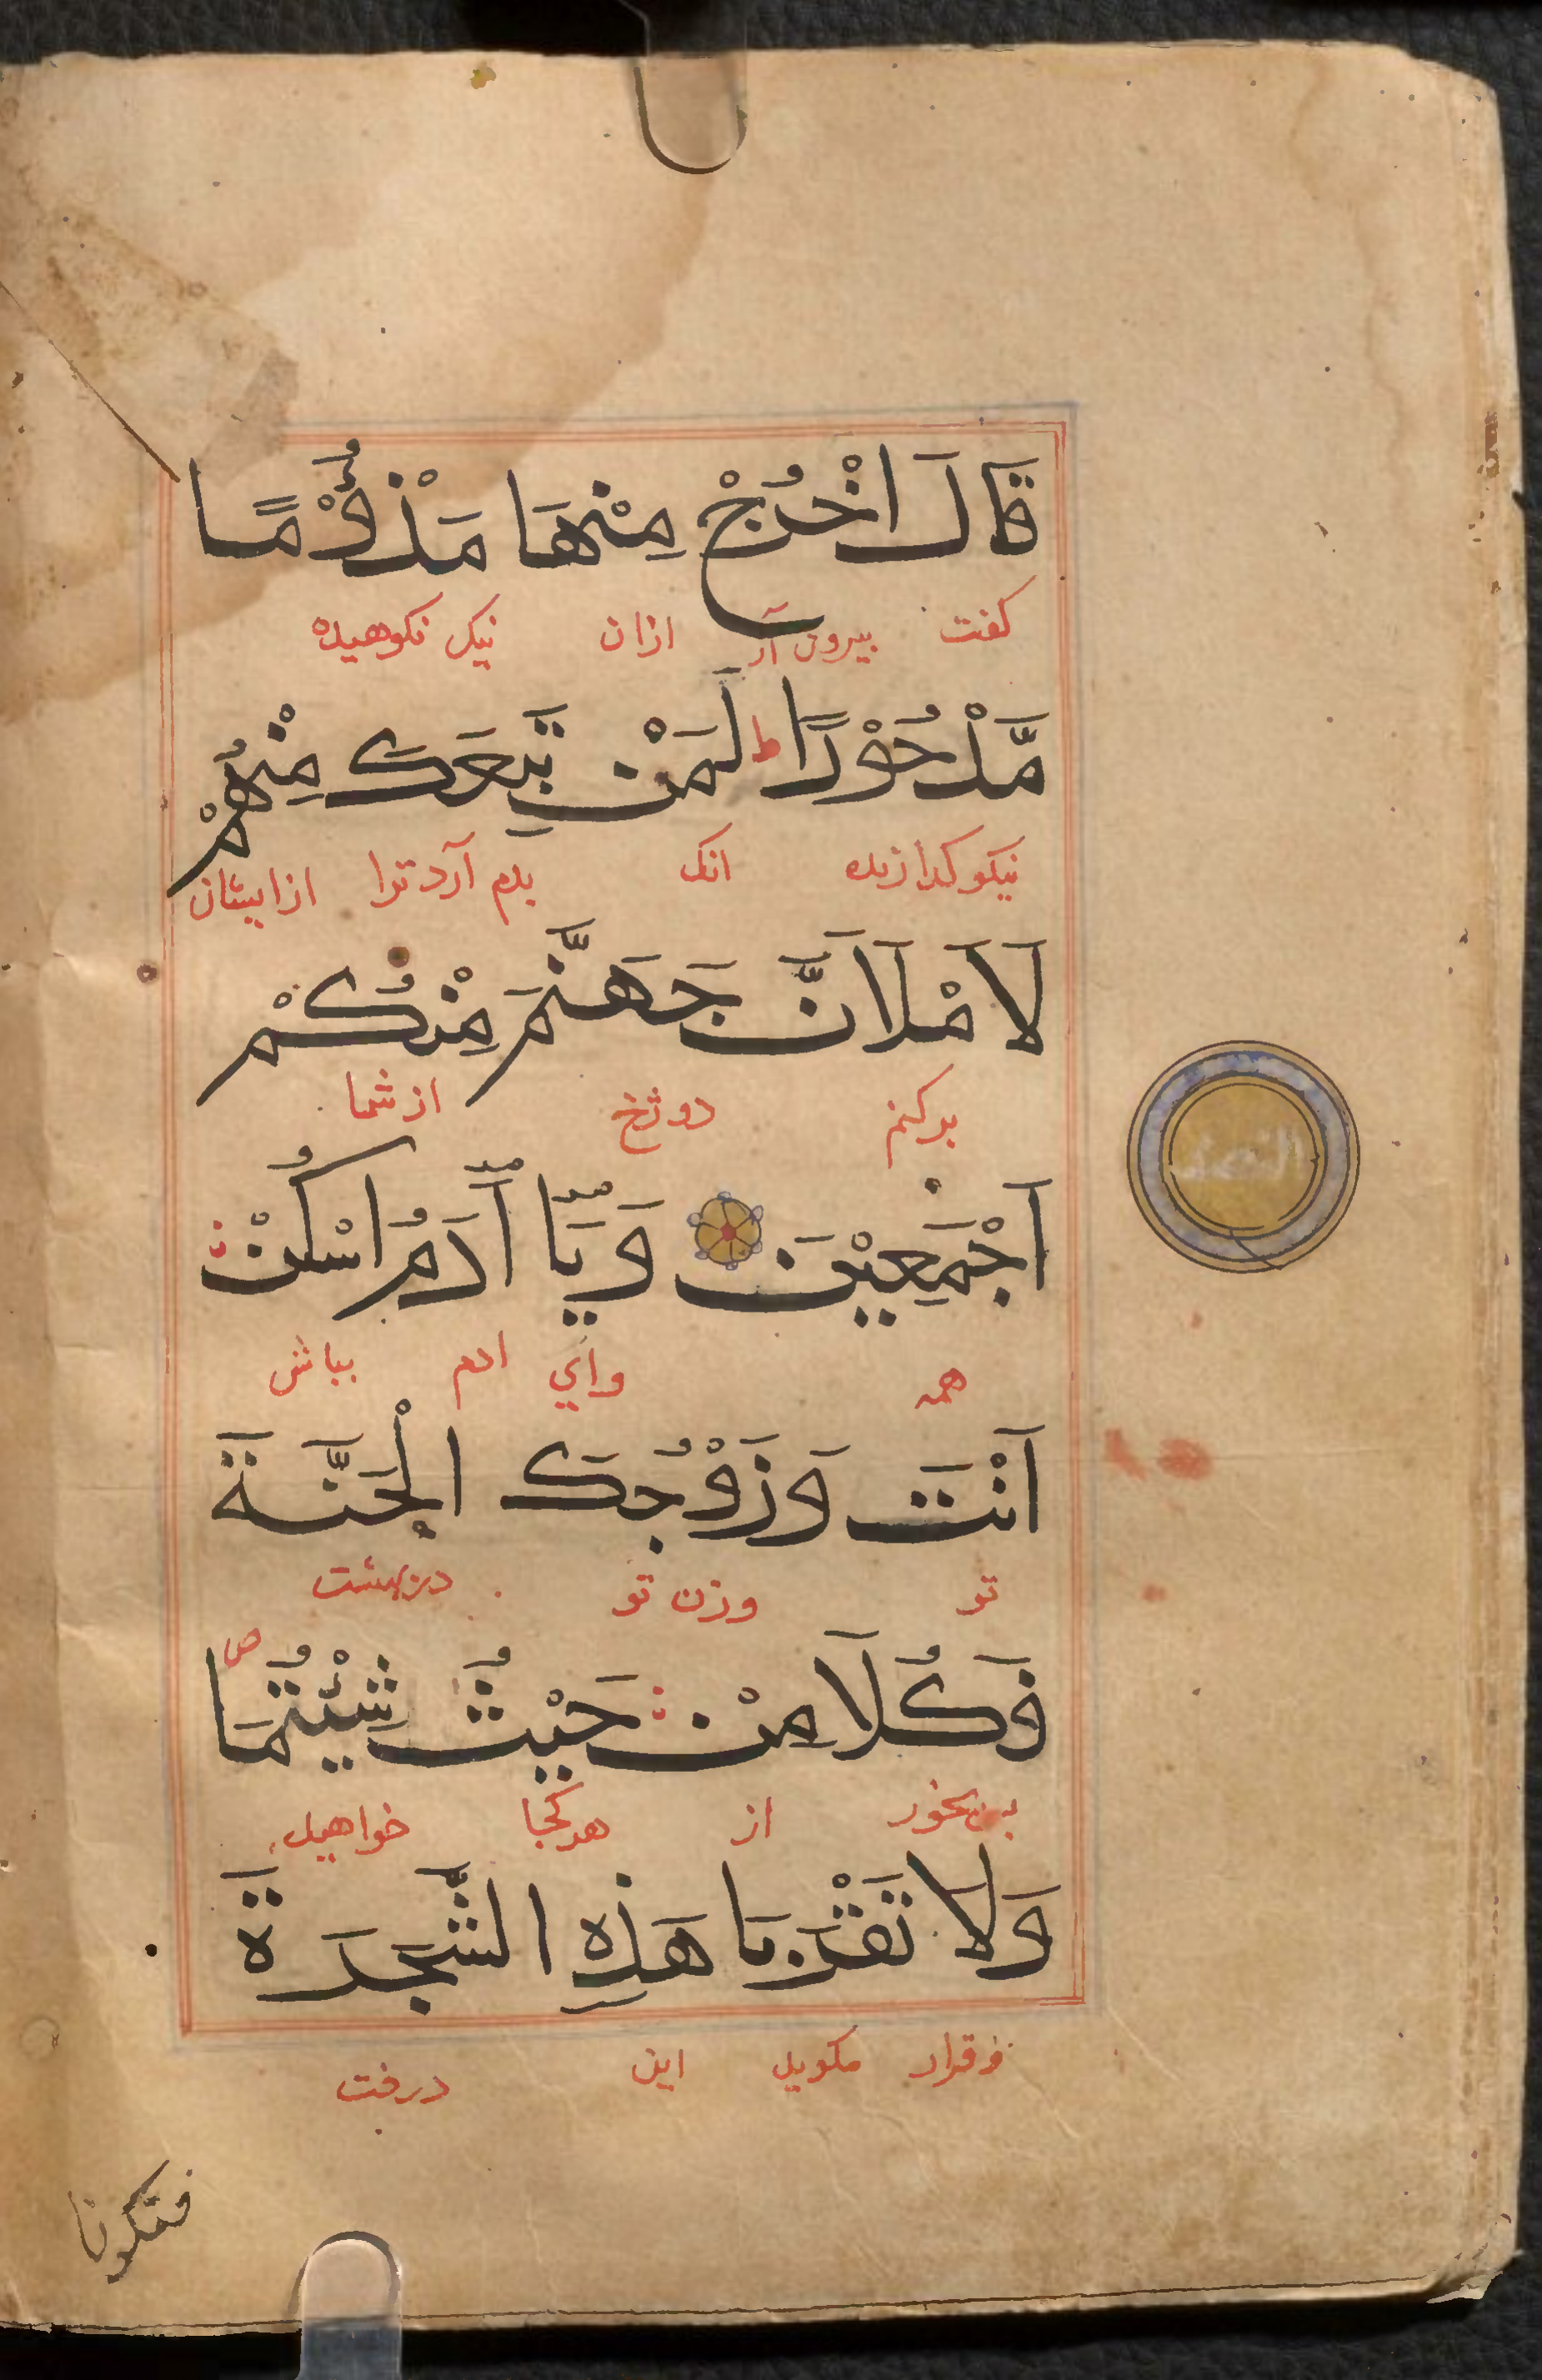 قَالَ اخْرُجْ مِنْهَا مَذْؤُوْمًا
کفت بیرون آر ازان نیک نکوهیده
مَّدْحُوْرًا ط لَمَنْ تَبِعَكَ مِنْهُمْ
نیکو کدازنده انک بدم آرد ترا ازایشان
لَاَمْلَاَنَّ جَهَنَّمَ مِنْكُمْ
برکنم دوزخ از شما
اَجْمَعِيْنَ وَيَآ اٰدَمُ اسْكُنْ
همه وای ادم بباش
اَنْتَ وَزَوْجُكَ الْجَنَّةَ
تو وزن تو در بهشت
فَكُلَا مِنْ حَيْثُ شِئْتُمَا ص
بخور از هرکجا خواهید
وَلَا تَقْرَبَا هَذِهِ الشَّجَرَةَ
این درخت
فتكونا